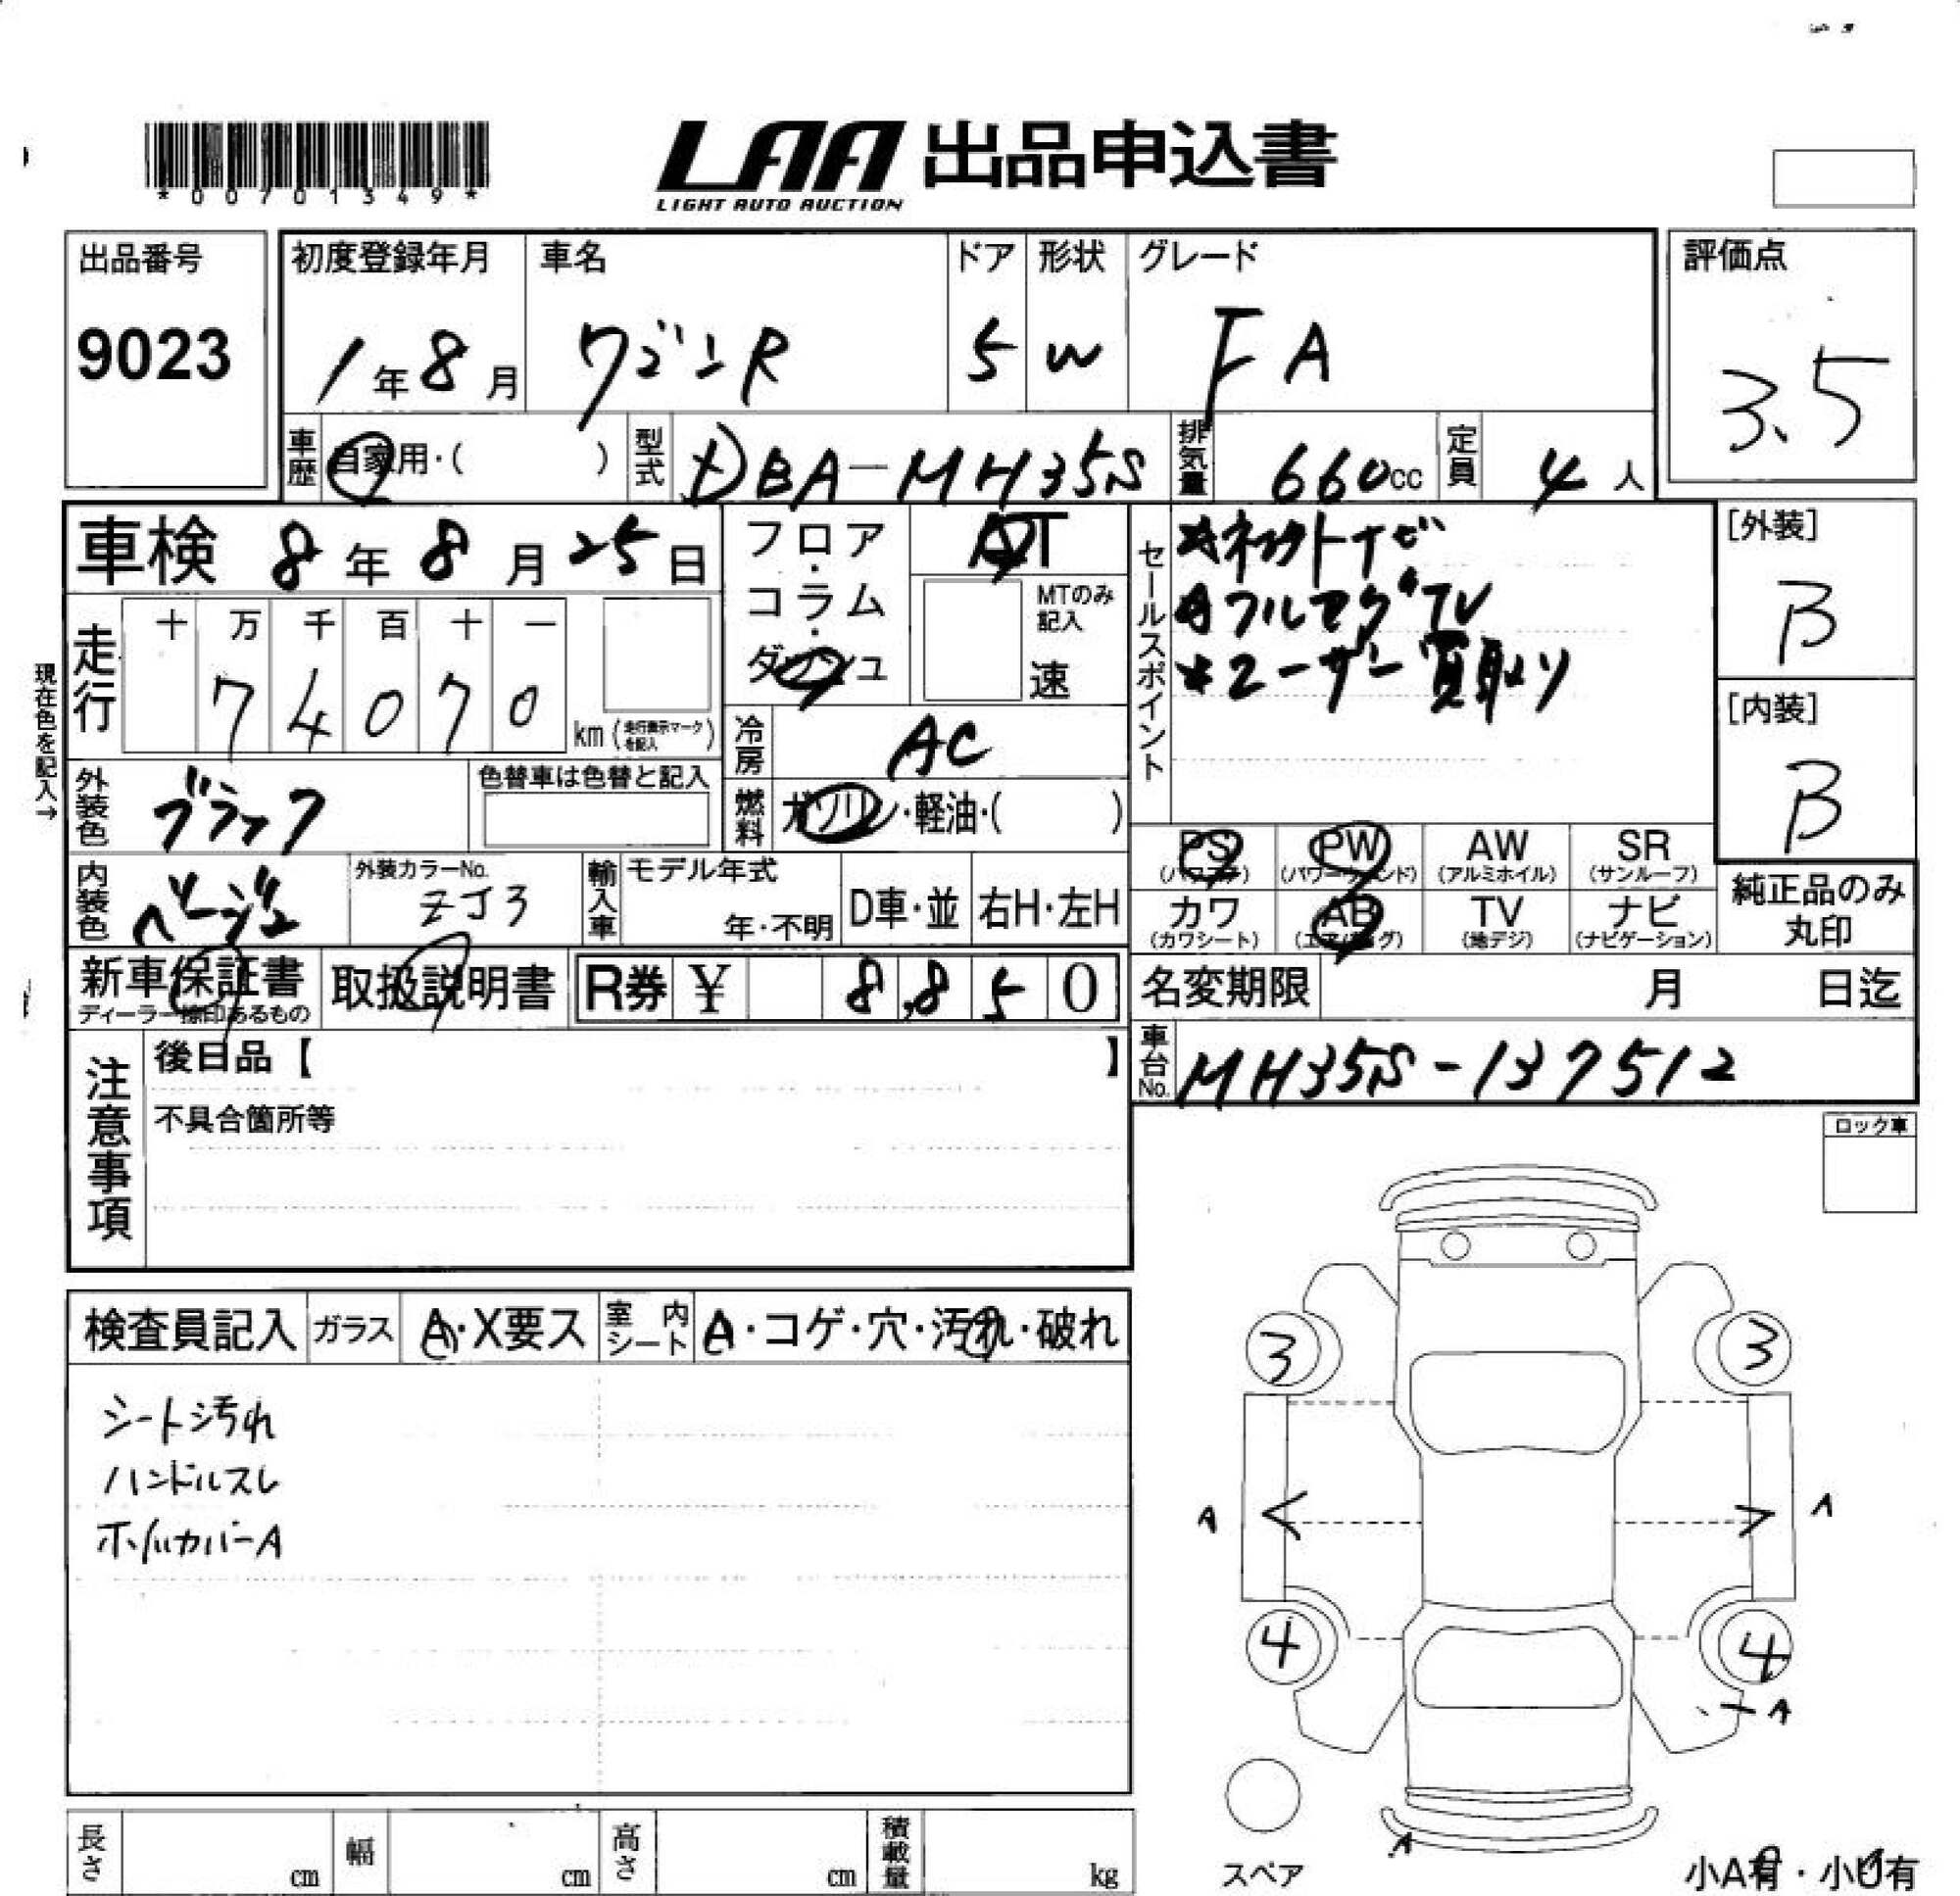 *00701349*
LAA 出品申込書
LIGHT AUTO AUCTION
出品番号
9023
初度登録年月
1年8月
車名
ワゴンR
ドア
5
形状
W
グレード
FA
評価点
3.5
車歴
自家用・( )
型式
DBA-MH35S
排気量
660cc
定員
4人
車検 8年8月25日
フロア・コラム・ダッシュ
AT
MTのみ記入
速
セールスポイント
*ネクストナビ
*フルセグTV
*ユーザー買取り
[外装]
B
[内装]
B
現在色を記入→
走行
十 万 千 百 十 一
7 4 0 7 0
km (走行表示マークを記入)
冷房
AC
外装色
ブラック
色替車は色替と記入
燃料
ガソリン・軽油・( )
PS (パワステ)
PW (パワーウィンド)
AW (アルミホイル)
SR (サンルーフ)
内装色
ベージュ
外装カラーNo.
ZJ3
輸入車
モデル年式
年・不明
D車・並
右H・左H
カワ (カワシート)
AB (エアバッグ)
TV (地デジ)
ナビ (ナビゲーション)
純正品のみ丸印
新車保証書
ディーラー捺印あるもの
取扱説明書
R券 ¥ 8,850
名変期限 月 日迄
注意事項
後日品【 】
不具合箇所等
車台No.
MH35S-137512
ロック車
検査員記入
ガラス
A・X要ス
室内シート
A・コゲ・穴・汚れ・破れ
シート汚れ
ハンドルスレ
ホイルカバーA
3
3
A
A
4
4
A
A
スペア
小A有・小U有
長さ cm
幅 cm
高さ cm
積載量 kg